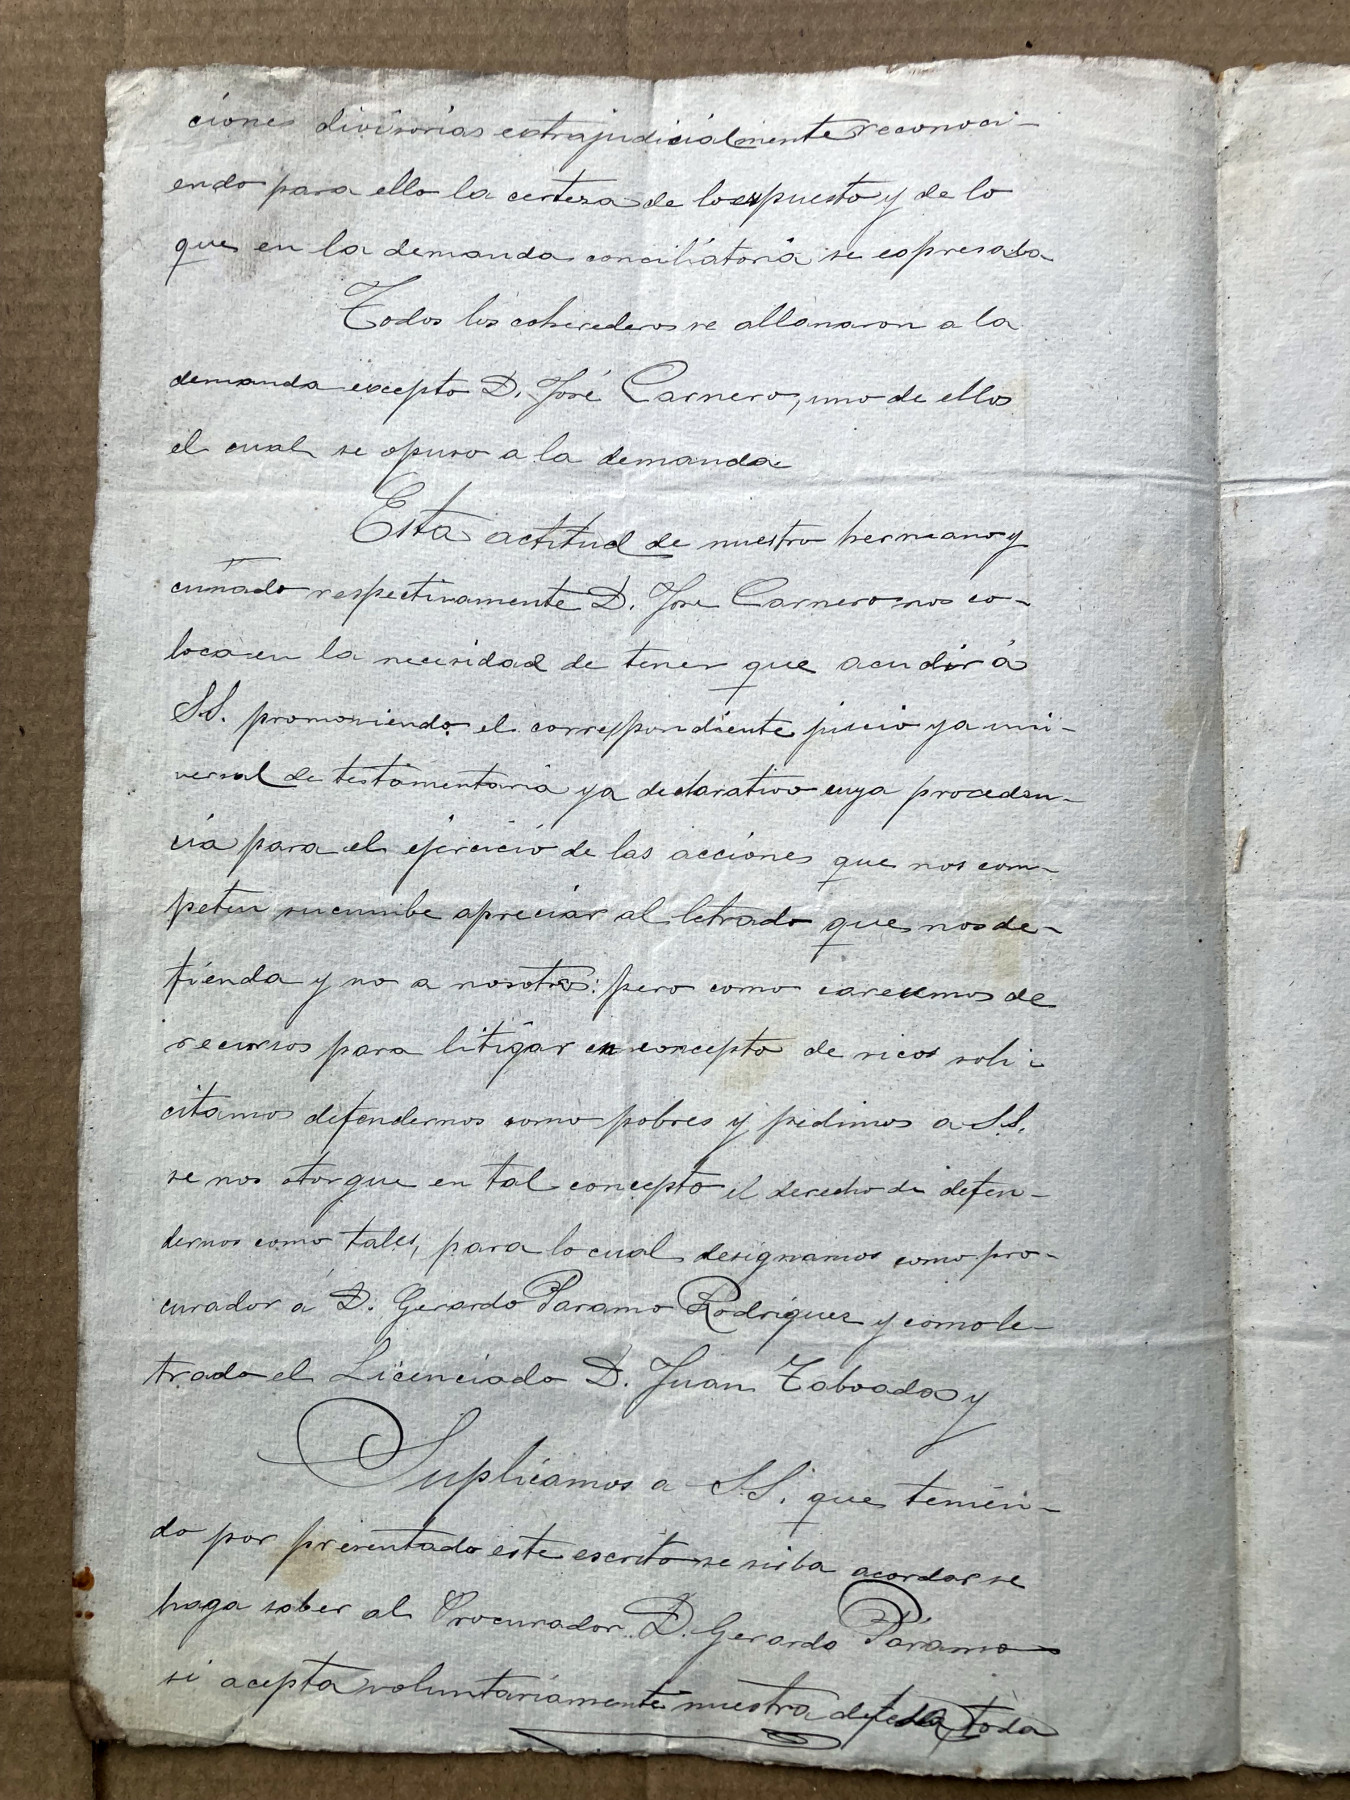 ciones divisorias extrajudicialmente reconoci-
endo para ello la certeza de lo expuesto y de lo
que en la demanda conciliatoria se expresaba
Todos los coherederos se allanaron a la
demanda excepto D. José Carnero, uno de ellos
el cual se opuso a la demanda
Esta actitud de nuestro hermano y
cuñado respectivamente D. José Carnero nos co-
loca en la necesidad de tener que acudir á
S.S. promoviendo el correspondiente juicio ya uni-
versal de testamentaria ya declarativo cuya proceden-
cia para el ejercicio de las acciones que nos com-
peten incumbe apreciar al letrado que nos de-
fienda y no a nosotros: pero como carecemos de
recursos para litigar en concepto de ricos soli-
citamos defendernos como pobres y pedimos a S.S.
se nos otorgue en tal concepto el derecho de defen-
dernos como tales, para lo cual designamos como pro-
curador á D. Gerardo Paramo Rodriguez y como le-
trado el Licenciado D. Juan Taboada y
Suplicamos a S.S. que tenien-
do por presentado este escrito se sirba acordar se
haga saber al Procurador D. Gerardo Páramo
si acepta voluntariamente nuestra defensa toda